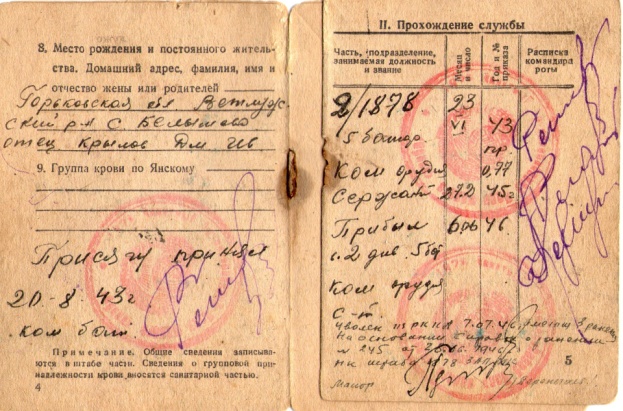 8. Место рождения и постоянного житель-
ства. Домашний адрес, фамилия, имя и
отчество жены или родителей
Горьковская обл Ветлуж-
ский р-н с.
отец Крылов Дм Ив
9. Группа крови по Янскому
Присягу принял
20-8-43г
ком бат.
Примечание. Общие сведения записы-
ваются в штабе части. Сведения о групповой при-
надлежности крови вносятся санитарной частью.
4
II. Прохождение службы
Часть, подразделение, занимаемая должность и звание
Месяц и число
Год и № приказа
Расписка командира роты
2/1878 23
VI 43
5 батар. пр.
Ком орудия 0,77
Сержант 27.2 45г
Прибыл 46
с. 2 див. 5 бат
Ком орудия
С-т.
Уволен 7.07.46
На основании
№ 245 от 1946г
Нк штаба
Майор
5